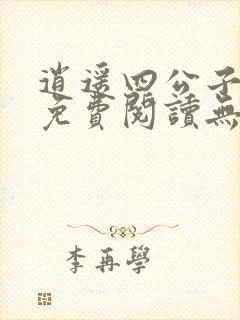 逍遥四公子
免費閱讀無
李再學